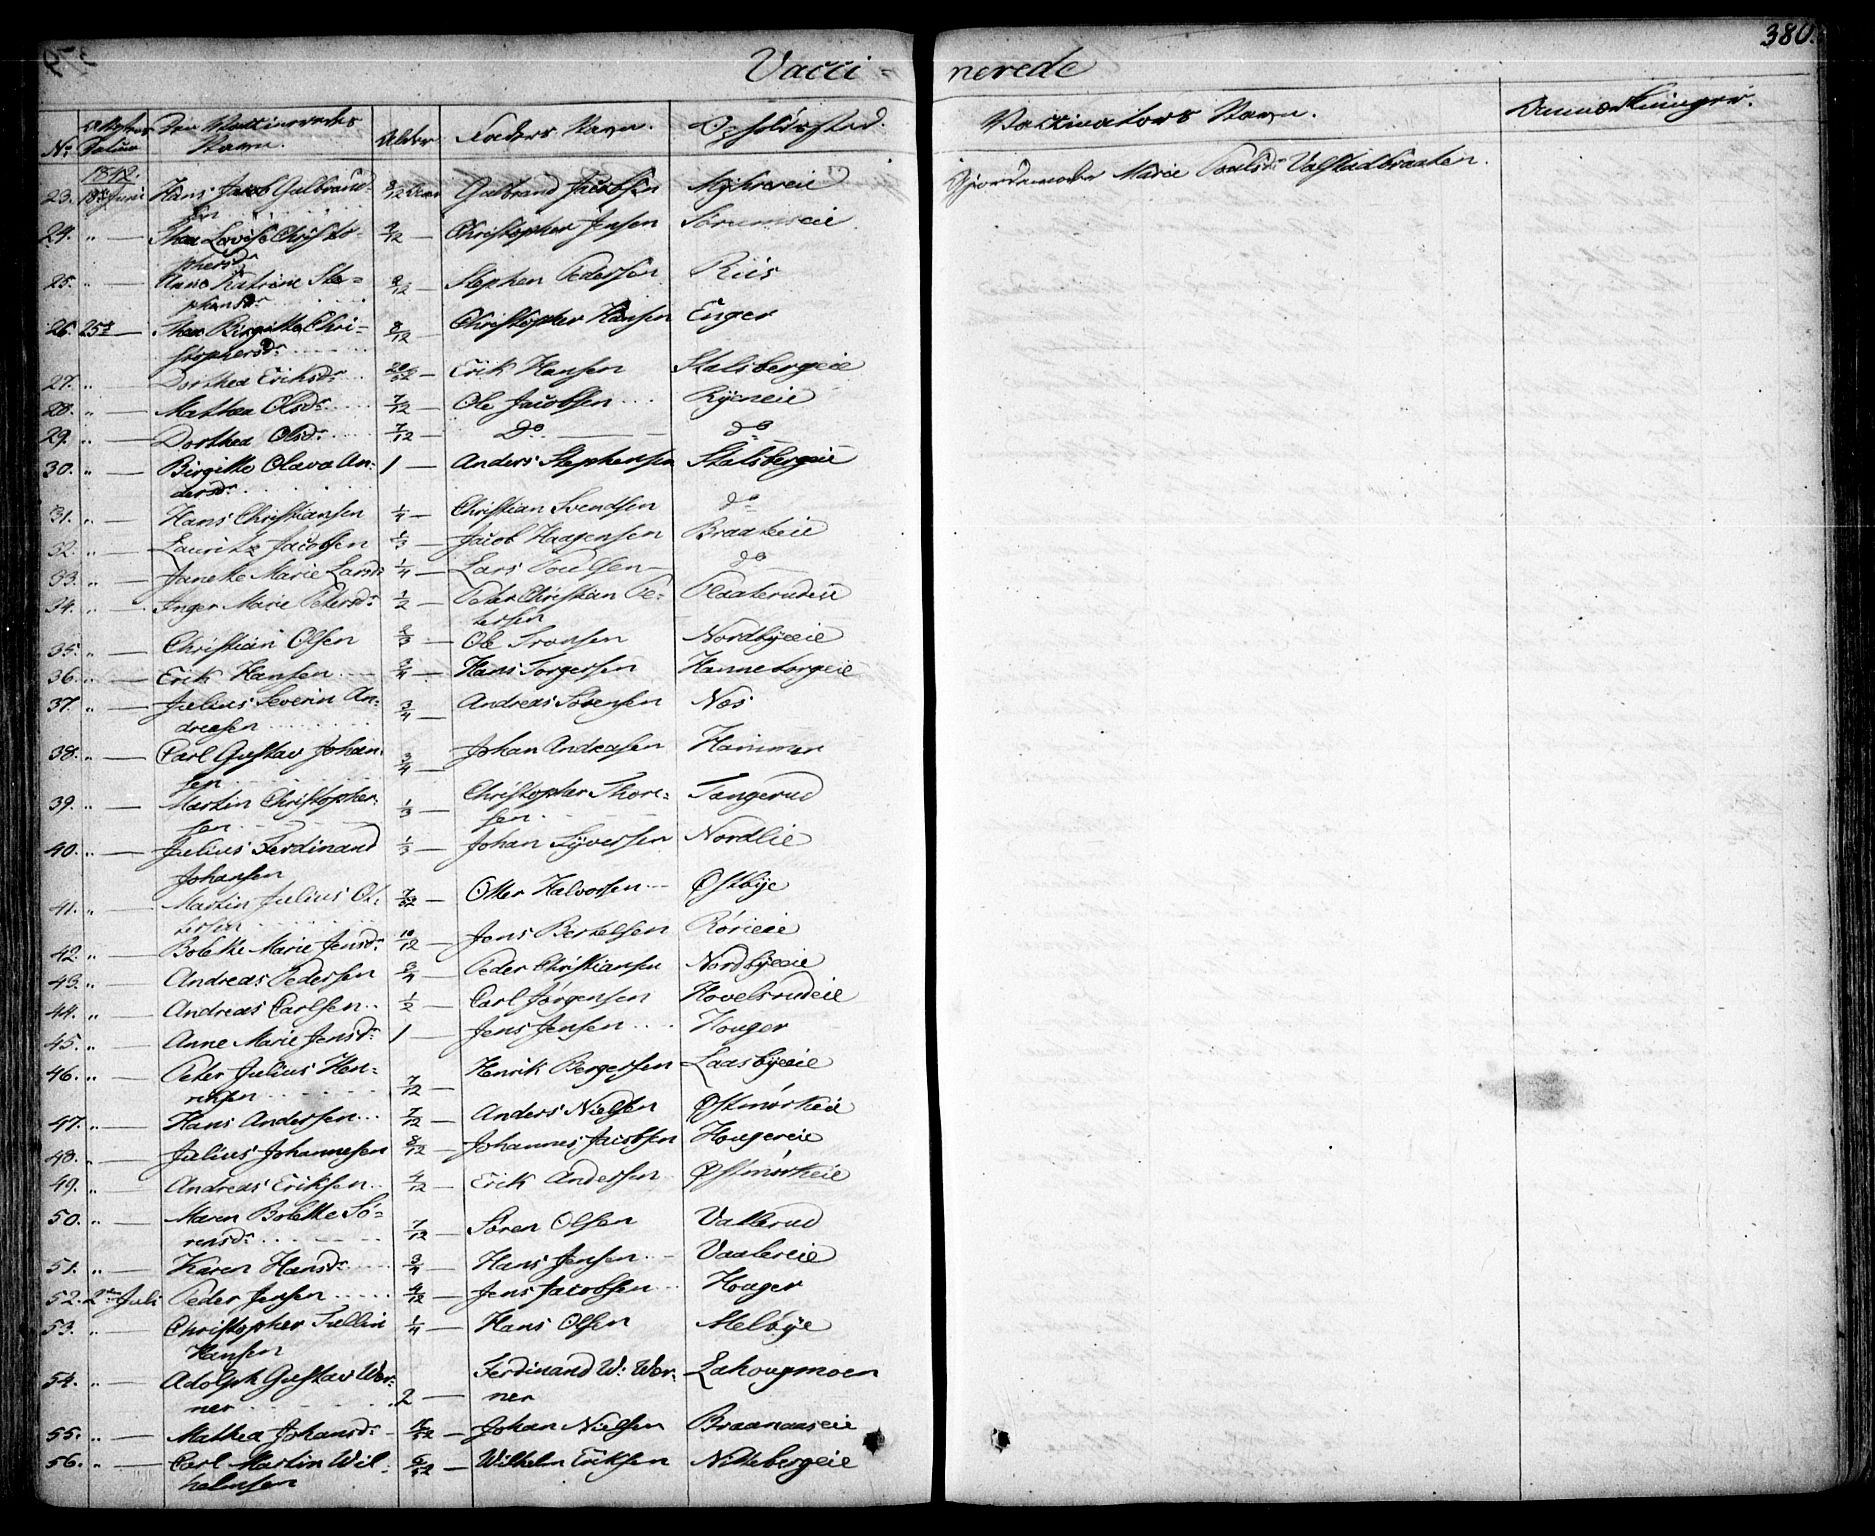 380.
Vacci-nerede
No. Datum Den Vaccineredes Navn. Alder Faders Navn. Opholdssted. Vaccinators Navn. Anmærkninger.
1842.
23. 13de Juni Hans Jacob Gulbrand- 8/12 Gulbrand Jacobsen Myhrereie Gjordemoder Marie Poulsdr Valstadbraaten.
sen
24. " — Thea Lovise Christo- 9/12 — Christopher Jensen Sørumseie
phersdr
25. " — Anne Katrine Ste- 9/12 — Stephen Pedersen Riis
phensdr
26. 25de — Thea Birgitte Chri- 8/12 — Christopher Hansen Enger
stophersdr
27. " Dorthea Eriksdr — Erik Hansen Stalsbergeie
28. " — Mathea Olsdr 7/12 — Ole Jacobsen Ryeneie
29. " — Dorthea Olsdr 7/12 — Do — do
30. " — Birgitte Olava An- 1 — Anders Stephensen Stalsbergeie
dersdr
31. " — Hans Christiansen 1/4 — Christian Svendsen do
32. " — Lauritz Jacobsen 1/3 — Jacob Haagensen Braateeie
33. " — Janette Marie Larsdr 1/4 — Lars Poulsen — do
34. " — Inger Marie Petersdr 1/2 — Peter Christian Pe- Plaaterudeie
tersen
35. " — Christian Olsen 2/3 — Ole Iversen Nordbyeeie
36. " — Erik Hansen 3/4 — Hans Torgersen Hanneborgeie
37. " — Julius Severin An- 3/4 — Andreas Sørensen Næs
dreasen
38. " — Carl Gustav Johan- 3/4 — Johan Andreasen Hammer
sen
39. " — Martin Christopher- 1/3 — Christopher Thore- Tangerud
sen sen
40. " — Julius Ferdinand 1/3 — Johan Syversen Nordlie
Johansen
41. " — Martin Julius Ot- 7/12 — Otter Halvorsen Østbye
tersen
42. " — Bolette Marie Jensdr 10/12 — Jens Bertelsen Rørieie
43. " — Andreas Pedersen 3/4 — Peder Christiansen Nordbyeeie
44. " — Andreas Carlsen 1/2 — Carl Jørgensen Hovelsrudeie
45. " — Anne Marie Jensdr 1 — Jens Jensen Houger
46. " — Peter Julius Hen- 7/12 — Henrik Bergersen Laasbyeeie
riksen
47. " — Hans Andersen 7/12 — Anders Nielsen Østmørkeie
48. " — Julius Johannesen 8/12 — Johannes Jacobsen Hougereie
49. " — Andreas Eriksen 4/12 — Erik Andersen Østmørkeie
50. " — Maren Bolette Sø- 7/12 — Søren Olsen Vallerud
rensdr
51. " — Karen Hansdr 3/4 — Hans Jensen Vaalereie
52. 2den Juli Peder Jensen 4/12 — Jens Jacobsen Houger
53. " — Christopher Tullin 1/4 — Hans Olsen Melbye
Hansen
54. " — Adolph Gustav Wer- 2 — Ferdinand W: Wer- Lahougmoen
ner ner
55. " — Mathea Johansdr — Johan Nielsen Braanaaseie
56. " — Carl Martin Wil- — Wilhelm Eriksen Nittebergeie
helmsen